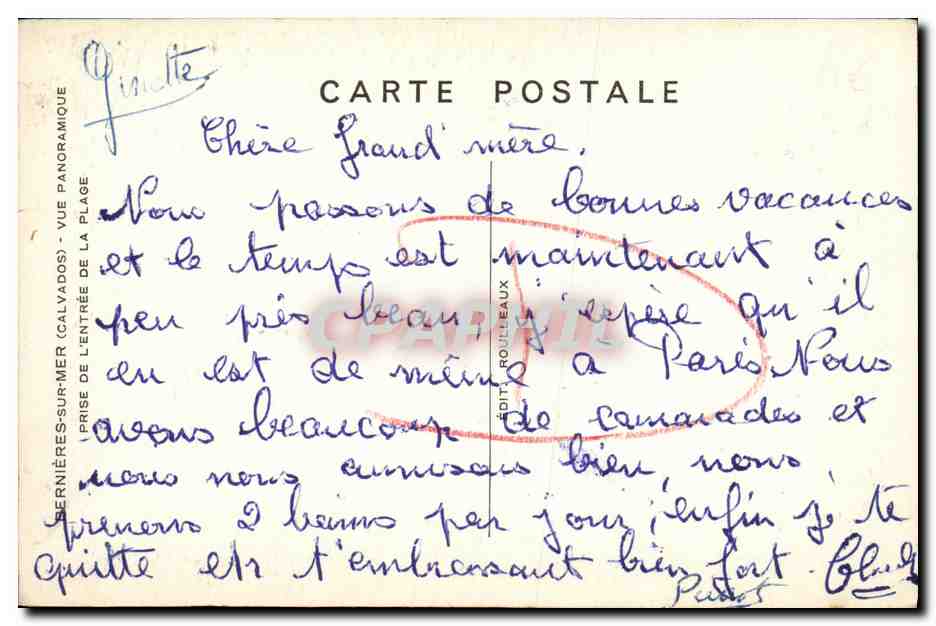 Ginette
CARTE POSTALE
Chère Grand' mère.
Nous passons de bonnes vacances
et le temps est maintenant à
peu près beau, j'espère qu'il
en est de même à Paris. Nous
avons beaucoup de camarades et
nous nous amusons bien, nous
prenons 2 bains par jour; enfin je te
quitte en t'embrassant bien fort. Claude
BERNIÈRES-SUR-MER (CALVADOS) - VUE PANORAMIQUE
PRISE DE L'ENTRÉE DE LA PLAGE
ÉDIT. ROULLEAUX
CPAPHIL